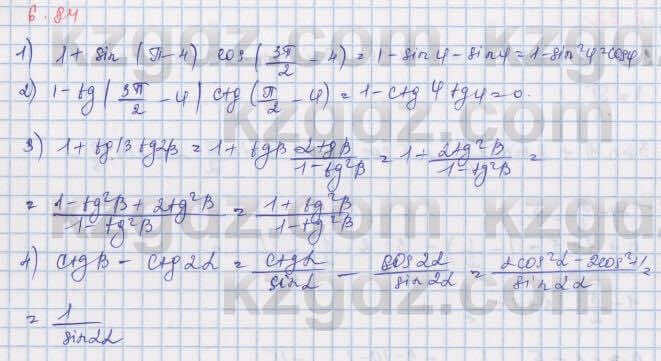 6.84
1) 1 + sin (π - 4) cos (3π/2 - 4) = 1 - sin 4 - sin 4 = 1 - sin²4 = cos4
2) 1 - tg (3π/2 - 4) ctg (π/2 - 4) = 1 - ctg 4 tg 4 = 0.
3) 1 + tgβ tg2β = 1 + tgβ 2tgβ/1 - tg²β = 1 + 2tg²β/1 - tg²β =
= 1 - tg²β + 2tg²β/1 - tg²β = 1 + tg²β/1 - tg²β
4) ctgβ - ctg2α = ctgα/sinα - cos2α/sin2α = 2cos²α - 2cos²+1/sin2α =
= 1/sin2α
kzgdz.com